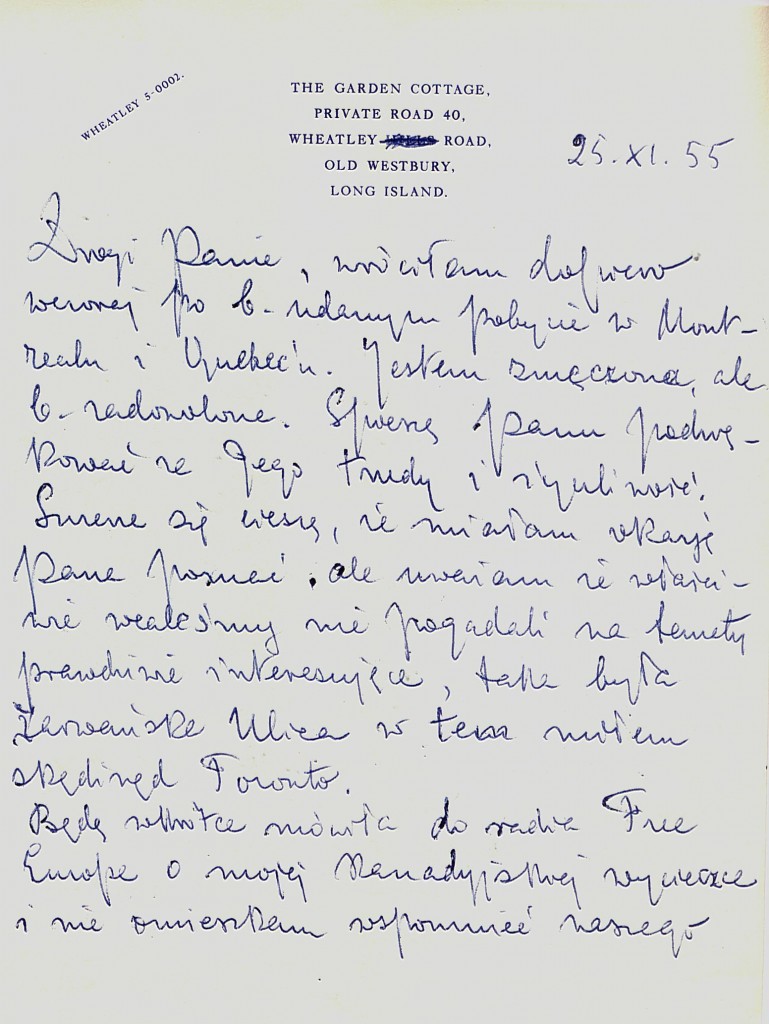 WHEATLEY 5-0002.
THE GARDEN COTTAGE,
PRIVATE ROAD 40,
WHEATLEY ROAD,
OLD WESTBURY,
LONG ISLAND.
25.XI.55
Drogi Panie, wróciłam dopiero
wczoraj po b. udanym pobycie w Mont-
realu i Quebec'u. Jestem zmęczona, ale
b. zadowolona. Spieszę Panu podzię-
kować za Jego trudy i życzliwość.
się cieszę, że miałam okazję
Pana poznać, ale uważam że właści-
wie wcaleśmy nie pogadali na tematy
prawdziwie interesujące, taka była
Ulica w tem miłem
skądinąd Toronto.
Będę wkrótce mówiła do radia Free
Europe o mojej Kanadyjskiej wycieczce
i nie omieszkam wspomnieć naszego